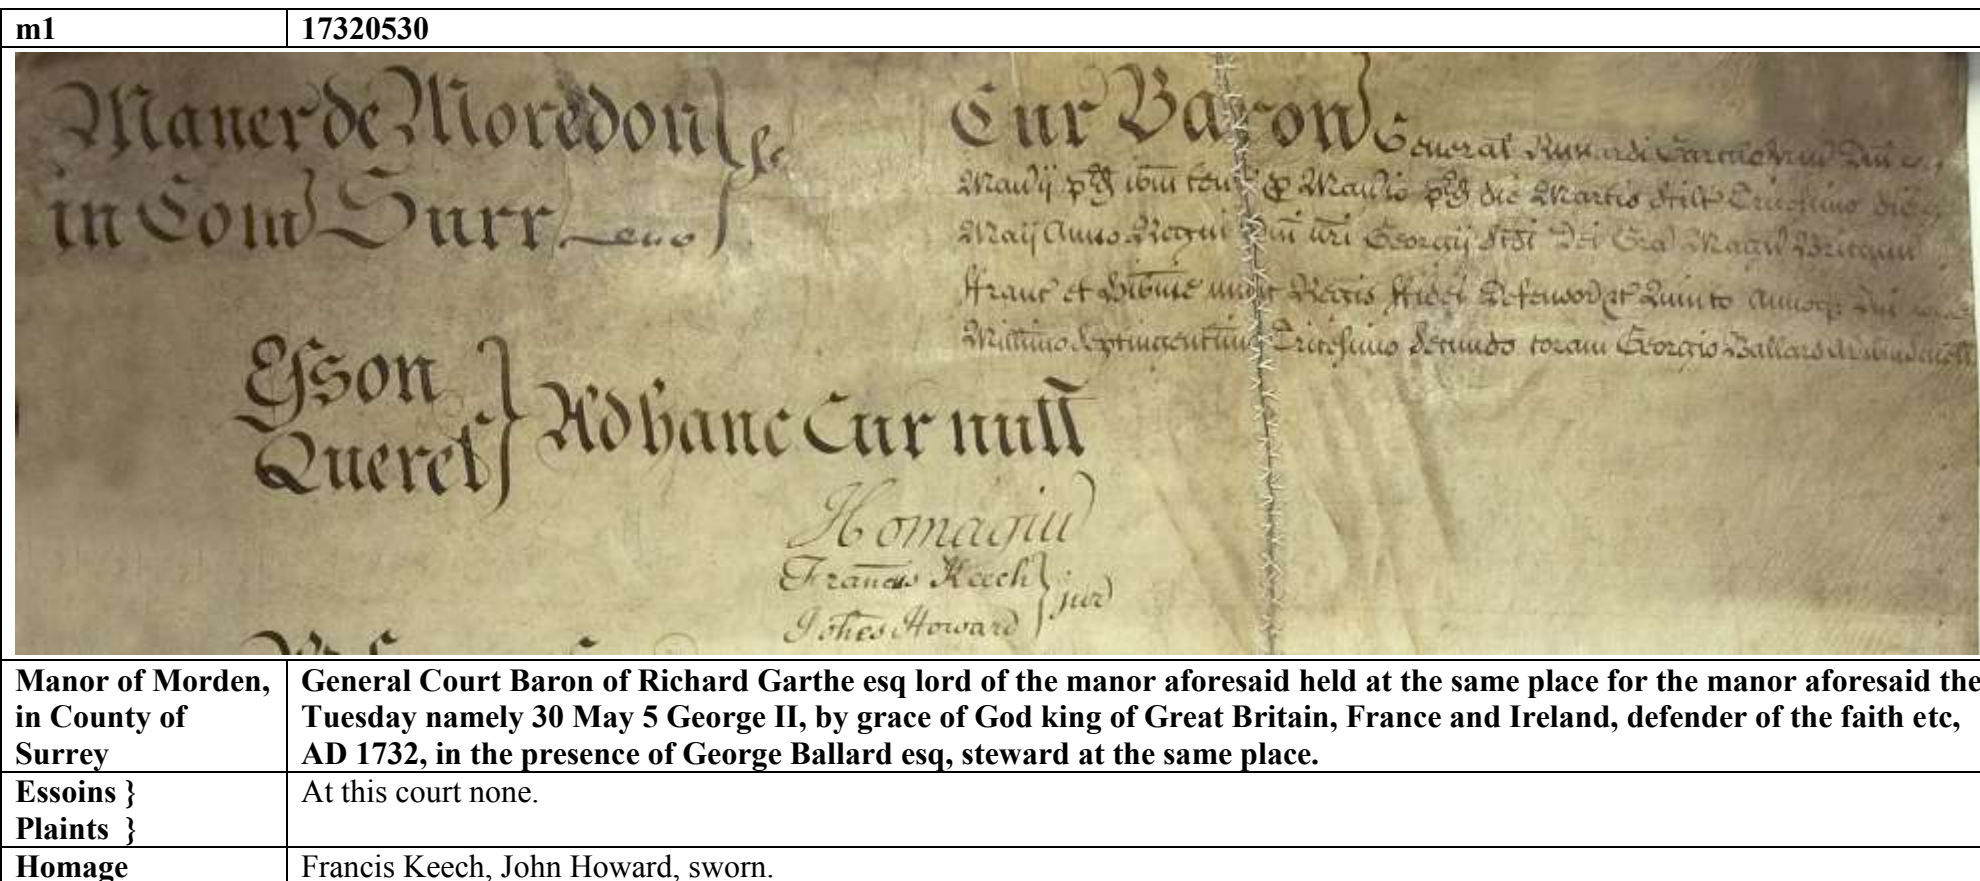 m1 17320530
Maner de Moredon } ss
in Com Surr
Cur Baron General Ricardi Garth
Manij pd ibm tent p Manio pd die Martis scilt Tricesimo die
Maij Anno Regni Dni nri Georgij scdi Dei Gra Magn Britann
ffranc et Hibnie nunc Regis ffidei Defensor &c Quinto Annoq Dni
Millimo Septingentimo Tricesimo Secundo coram Georgio Ballard
Esson
Querel } Ad hanc Cur null
Homagiu
Francus Keech } jur
Johes Howard
Manor of Morden, General Court Baron of Richard Garthe esq lord of the manor aforesaid held at the same place for the manor aforesaid the
in County of Tuesday namely 30 May 5 George II, by grace of God king of Great Britain, France and Ireland, defender of the faith etc,
Surrey AD 1732, in the presence of George Ballard esq, steward at the same place.
Essoins } At this court none.
Plaints }
Homage Francis Keech, John Howard, sworn.